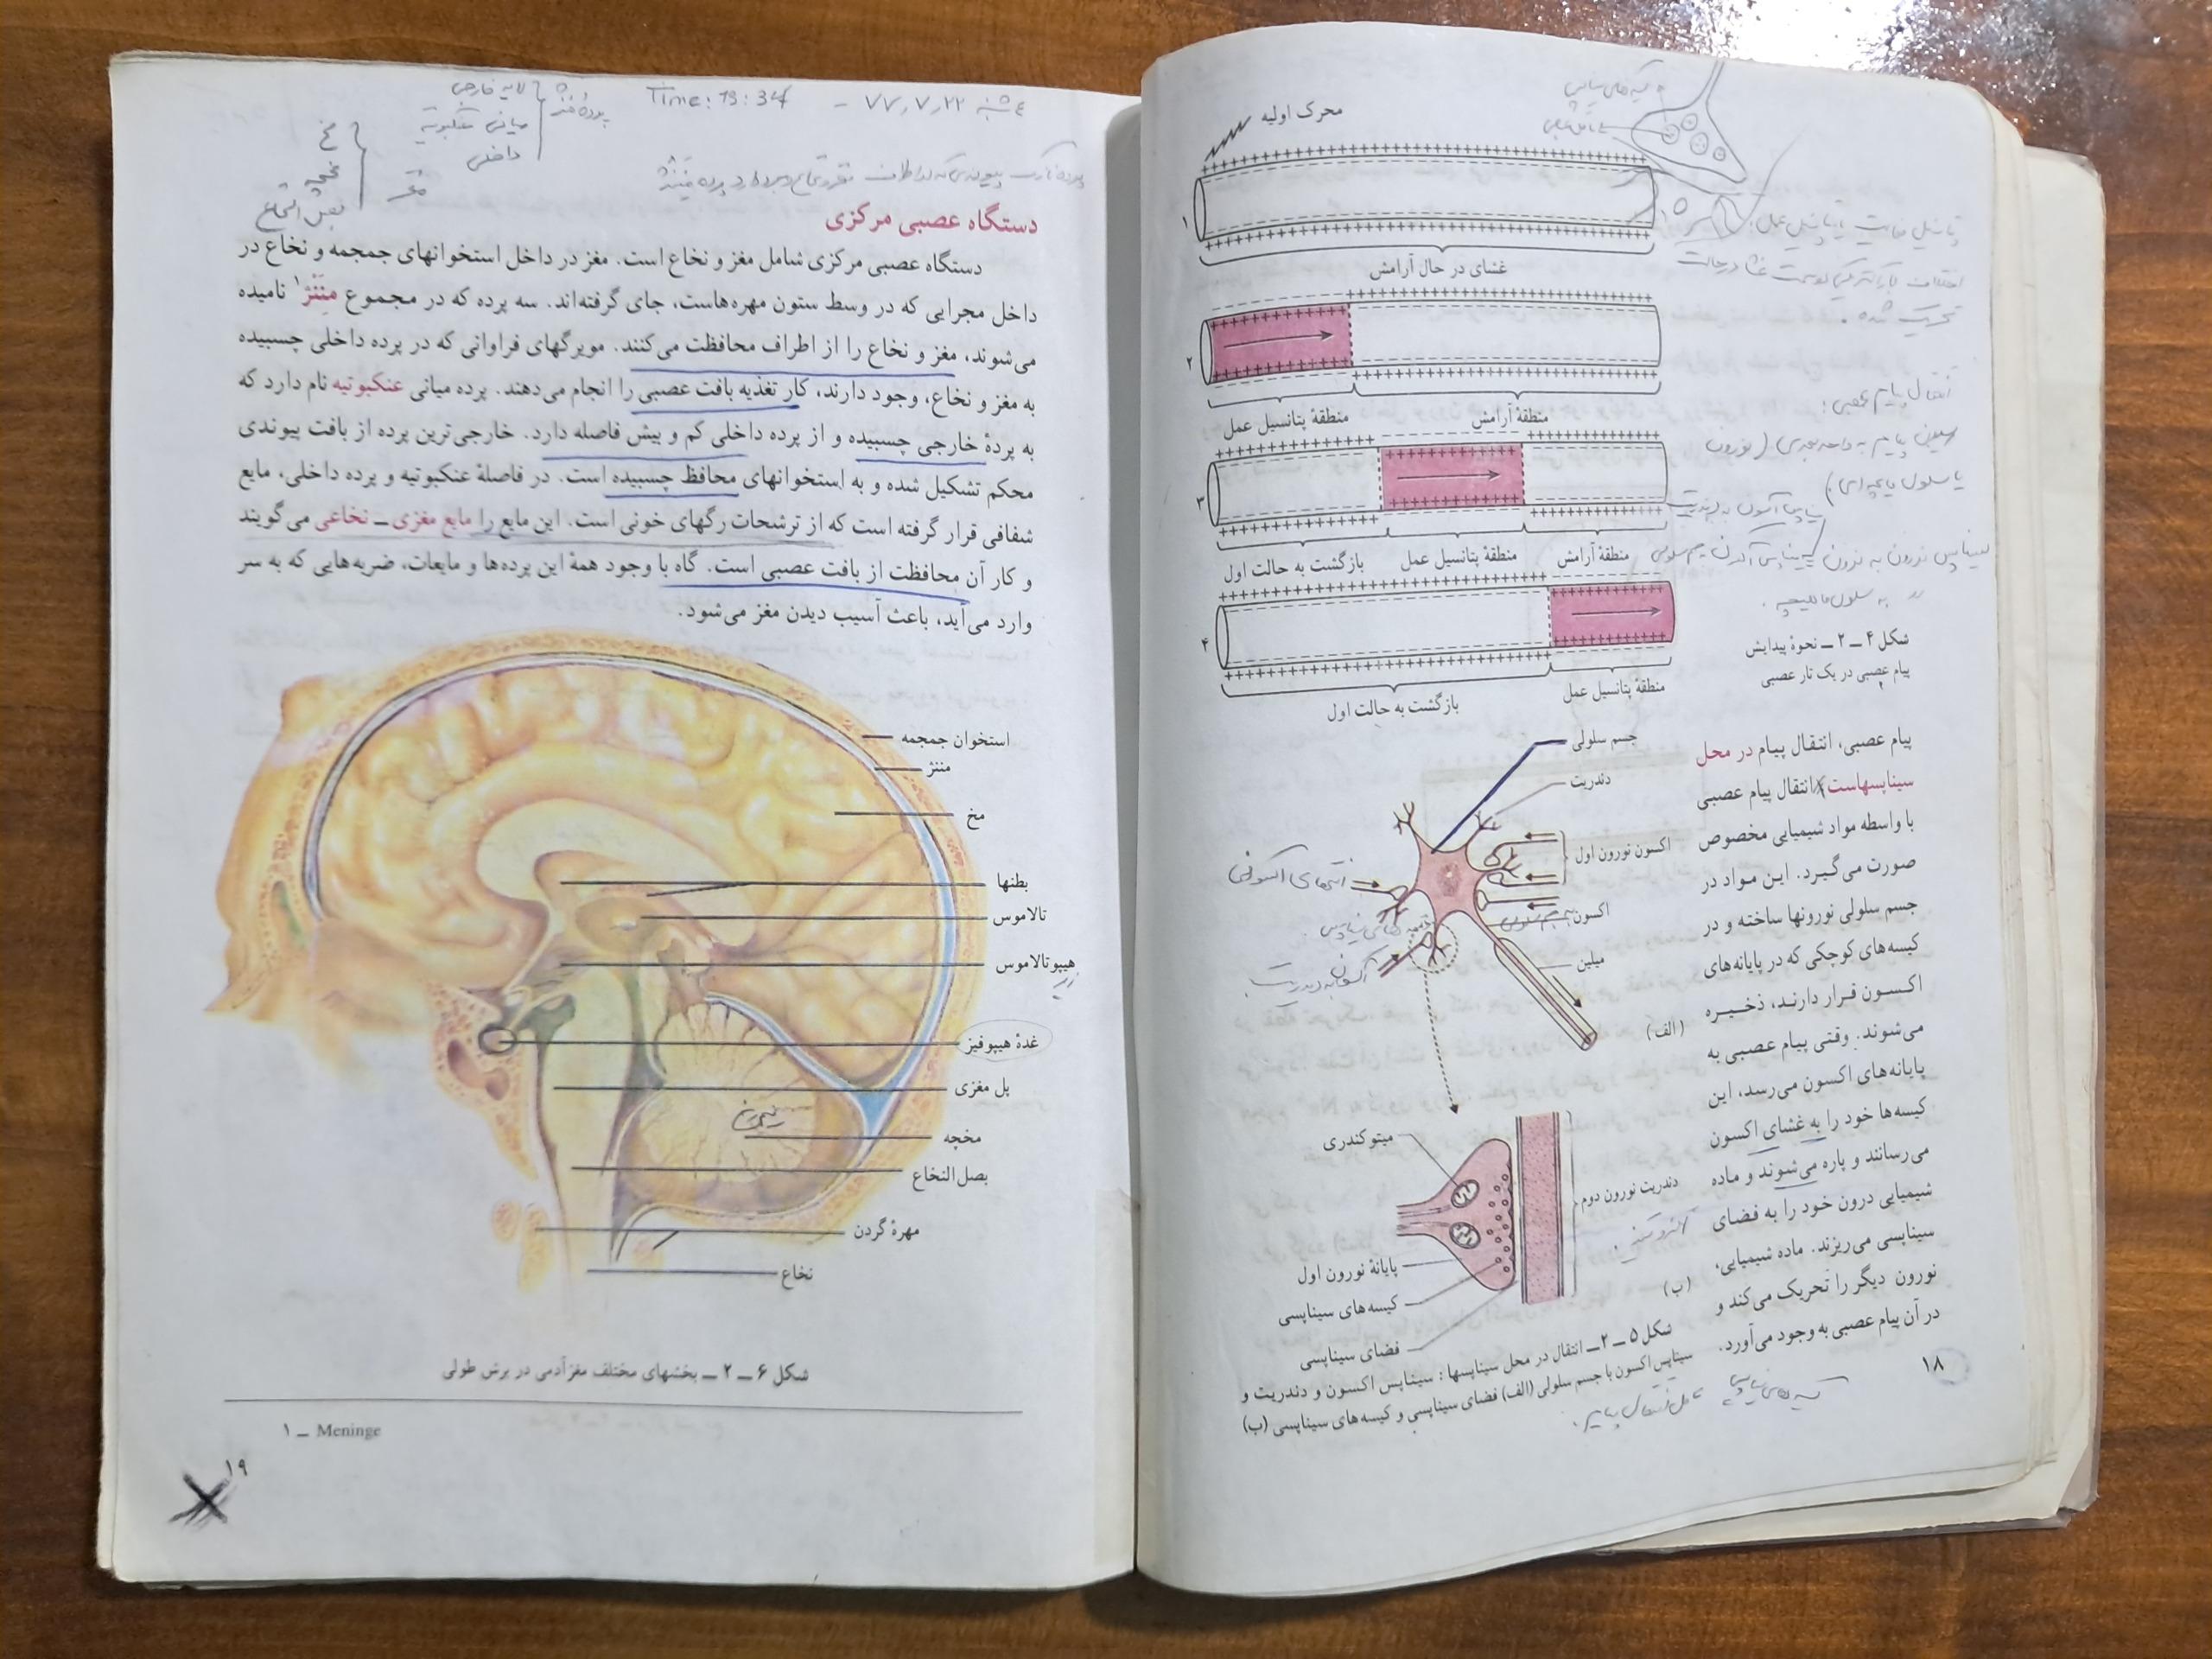 محرک اولیه
۱
غشای در حال آرامش
۲
منطقهٔ آرامش
منطقهٔ پتانسیل عمل
۳
منطقهٔ آرامش
منطقهٔ پتانسیل عمل
بازگشت به حالت اول
۴
منطقهٔ پتانسیل عمل
بازگشت به حالت اول
پتانسیل فعالیت یا پتانسیل عمل:
تحریک شده.
انتقال پیام عصبی:
یا سلول ماهیچه‌ای)
به سلول ماهیچه.
شکل ۴ ــ ۲ ــ نحوهٔ پیدایش
پیام عصبی در یک تار عصبی
پیام عصبی، انتقال پیام در محل
سیناپسهاست، انتقال پیام عصبی
با واسطه مواد شیمیایی مخصوص
صورت می‌گیرد. این مواد در
جسم سلولی نورونها ساخته و در
کیسه‌های کوچکی که در پایانه‌های
اکسون قرار دارند، ذخیره
می‌شوند. وقتی پیام عصبی به
پایانه‌های اکسون می‌رسد، این
کیسه‌ها خود را به غشای اکسون
می‌رسانند و پاره می‌شوند و ماده
شیمیایی درون خود را به فضای
سیناپسی می‌ریزند. ماده شیمیایی،
نورون دیگر را تحریک می‌کند و
در آن پیام عصبی به وجود می‌آورد.
جسم سلولی
دندریت
اکسون نورون اول
انتهای اکسونی
اکسون
میلین
(الف)
میتوکندری
دندریت نورون دوم
پایانهٔ نورون اول
کیسه‌های سیناپسی
فضای سیناپسی
(ب)
شکل ۵ ــ ۲ــ انتقال در محل سیناپسها : سیناپس اکسون و دندریت و
سیناپس اکسون با جسم سلولی (الف) فضای سیناپسی و کیسه‌های سیناپسی (ب)
کیسه‌های سیناپسی
عامل انتقال پیام.
۱۸
۴ شنبه ۷۷,۷,۲۲ - Time: 13:34
پردهٔ مننژ
لایه خارجی
میانی عنکبوتیه
داخلی
مغز
مخ
مخچه
بصل النخاع
دستگاه عصبی مرکزی
دستگاه عصبی مرکزی شامل مغز و نخاع است. مغز در داخل استخوانهای جمجمه و نخاع در
داخل مجرایی که در وسط ستون مهره‌هاست، جای گرفته‌اند. سه پرده که در مجموع مننژ۱ نامیده
می‌شوند، مغز و نخاع را از اطراف محافظت می‌کنند. مویرگهای فراوانی که در پرده داخلی چسبیده
به مغز و نخاع، وجود دارند، کار تغذیه بافت عصبی را انجام می‌دهند. پرده میانی عنکبوتیه نام دارد که
به پردهٔ خارجی چسبیده و از پرده داخلی کم و بیش فاصله دارد. خارجی‌ترین پرده از بافت پیوندی
محکم تشکیل شده و به استخوانهای محافظ چسبیده است. در فاصلهٔ عنکبوتیه و پرده داخلی، مایع
شفافی قرار گرفته است که از ترشحات رگهای خونی است. این مایع را مایع مغزی ــ نخاعی می‌گویند
و کار آن محافظت از بافت عصبی است. گاه با وجود همهٔ این پرده‌ها و مایعات، ضربه‌هایی که به سر
وارد می‌آید، باعث آسیب دیدن مغز می‌شود.
استخوان جمجمه
مننژ
مخ
بطنها
تالاموس
هیپوتالاموس
غدهٔ هیپوفیز
پل مغزی
مخچه
بصل النخاع
مهرهٔ گردن
نخاع
شکل ۶ ــ ۲ ــ بخشهای مختلف مغز آدمی در برش طولی
۱ ــ Meninge
۱۹